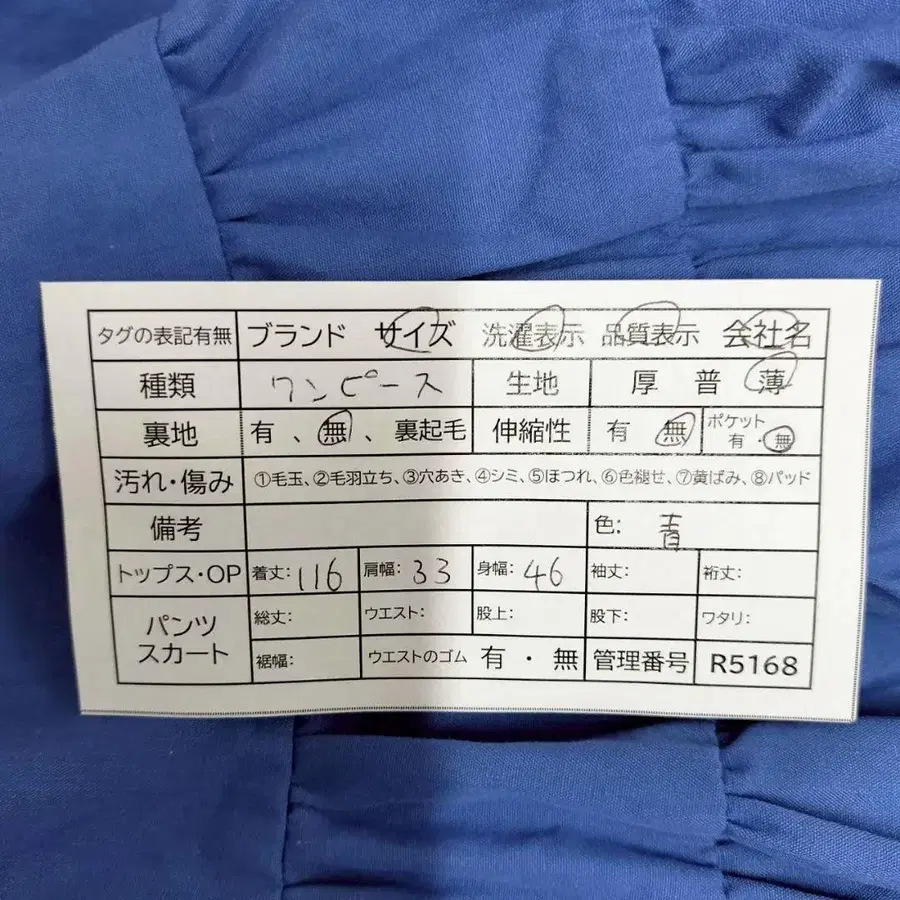 タグの表記有無 ブランド サイズ 洗濯表示 品質表示 会社名
種類 ワンピース 生地 厚 普 薄
裏地 有 、無 、裏起毛 伸縮性 有 無 ポケット 有・無
汚れ・傷み ①毛玉、②毛羽立ち、③穴あき、④シミ、⑤ほつれ、⑥色褪せ、⑦黄ばみ、⑧パッド
備考 色: 青
トップス・OP 着丈: 116 肩幅: 33 身幅: 46 袖丈: 裄丈:
パンツ スカート 総丈: ウエスト: 股上: 股下: ワタリ:
裾幅: ウエストのゴム 有 ・ 無 管理番号 R5168